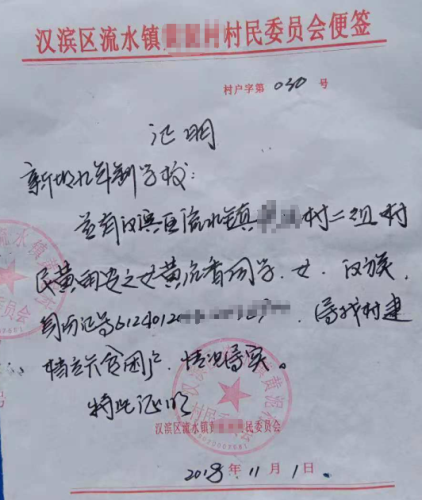 汉滨区流水镇村民委员会便签
村户字第 030 号
证明
新坝九年制学校：
兹有汉滨区流水镇村二组村
民黄国安之女黄沅香同学，女，汉族，
身份证号61240120，属我村建
档立卡贫困户，情况属实。
特此证明
汉滨区流水镇民委员会
2018年11月1日